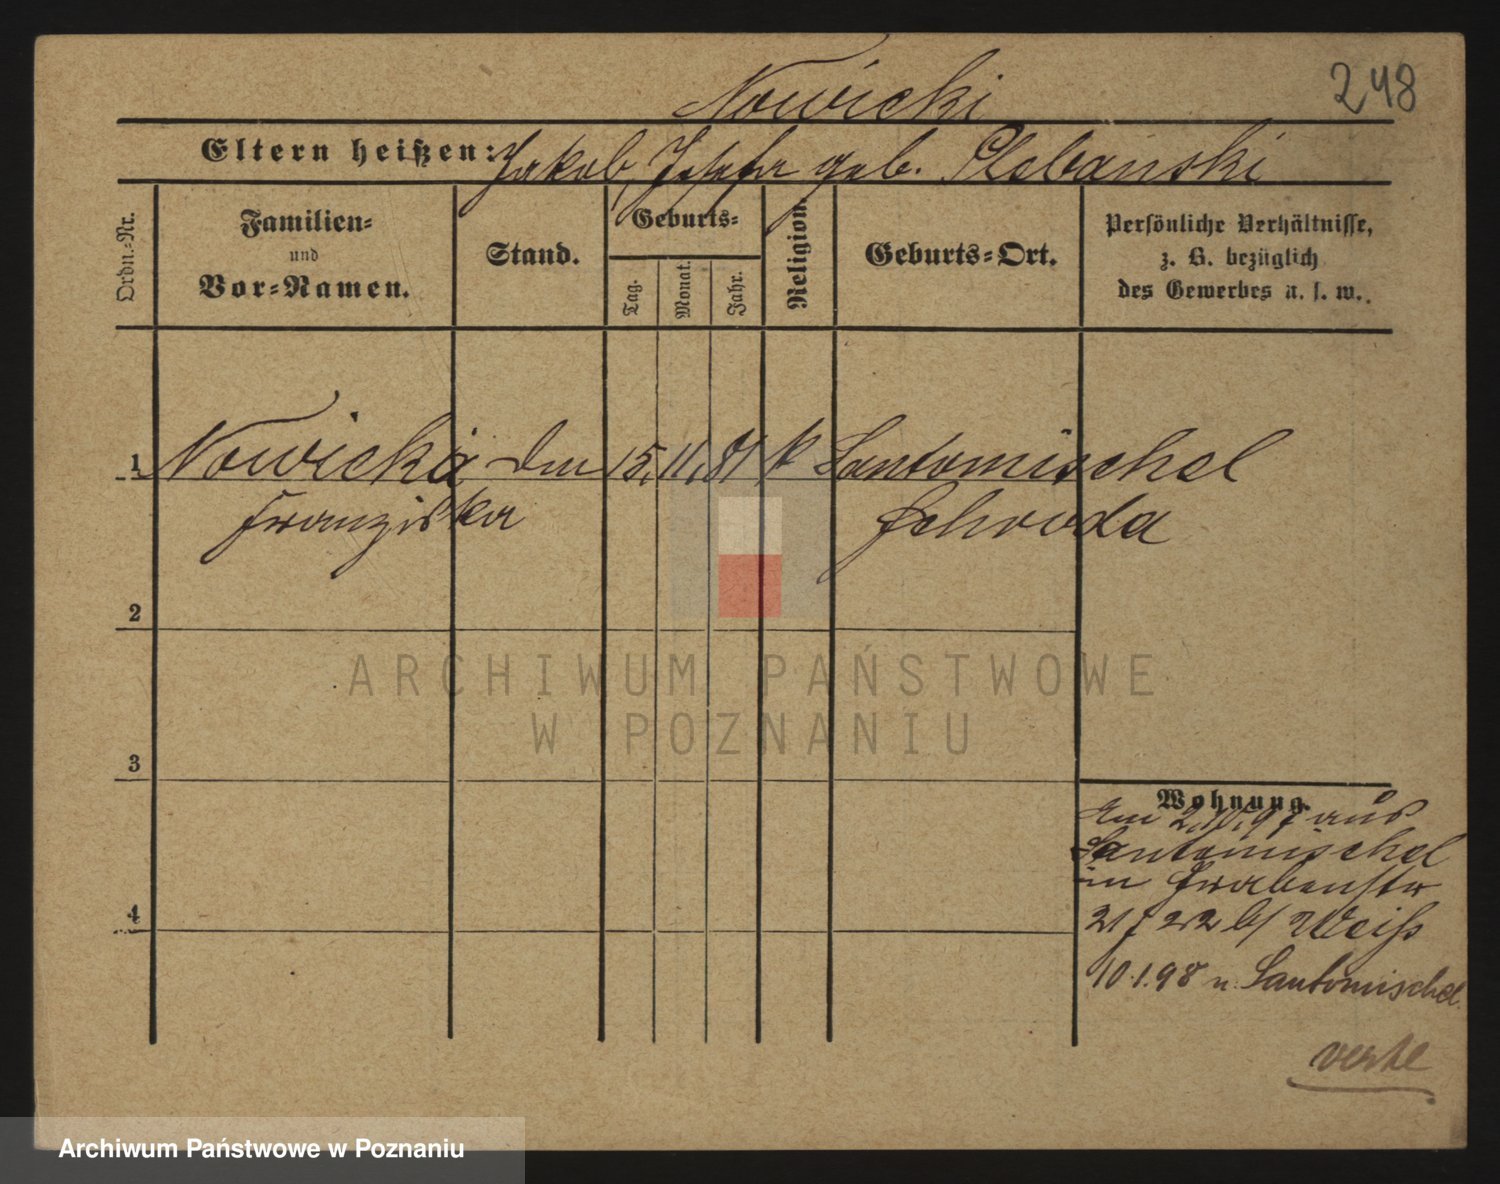 248
Nowicki
Eltern heißen: Jakob, Josefa geb. Plebanski
Ordn.-Nr.
Familien-
und
Vor-Namen.
Stand.
Geburts-
Tag.
Monat.
Jahr.
Religion.
Geburts-Ort.
Persönliche Verhältnisse,
z. B. bezüglich
des Gewerbes u. s. w.
1 Nowicka 15. 11. 81 k Santomischel
Franziska Schroda
2
3
4
Wohnung.
Am 2.10.97 aus
Santomischel
in Grabenstr
21/22 b/ Weiß
10.1.98 n. Santomischel.
verte
ARCHIWUM PAŃSTWOWE
W POZNANIU
Archiwum Państwowe w Poznaniu